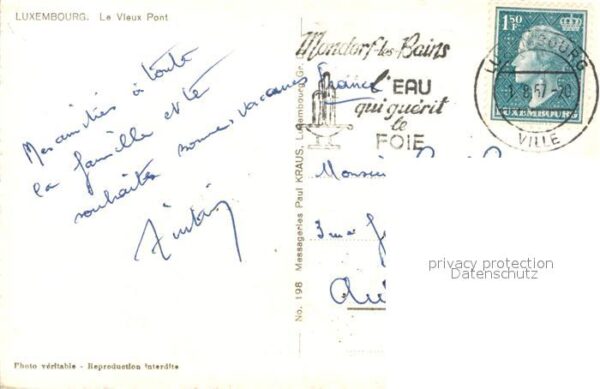 LUXEMBOURG. Le Vieux Pont
Mes amitiés à toute
la famille et te
souhaites bonnes vacances
France
Mondorf-les-Bains
l'EAU
qui guérit
le
FOIE
1F50
LUXEMBOURG
LUXEMBOURG
1.8.57-20
VILLE
Monsieu
3 rue
No. 198 Messageries Paul KRAUS, Luxembourg-Gr. D
privacy protection
Datenschutz
Photo véritable - Reproduction interdite